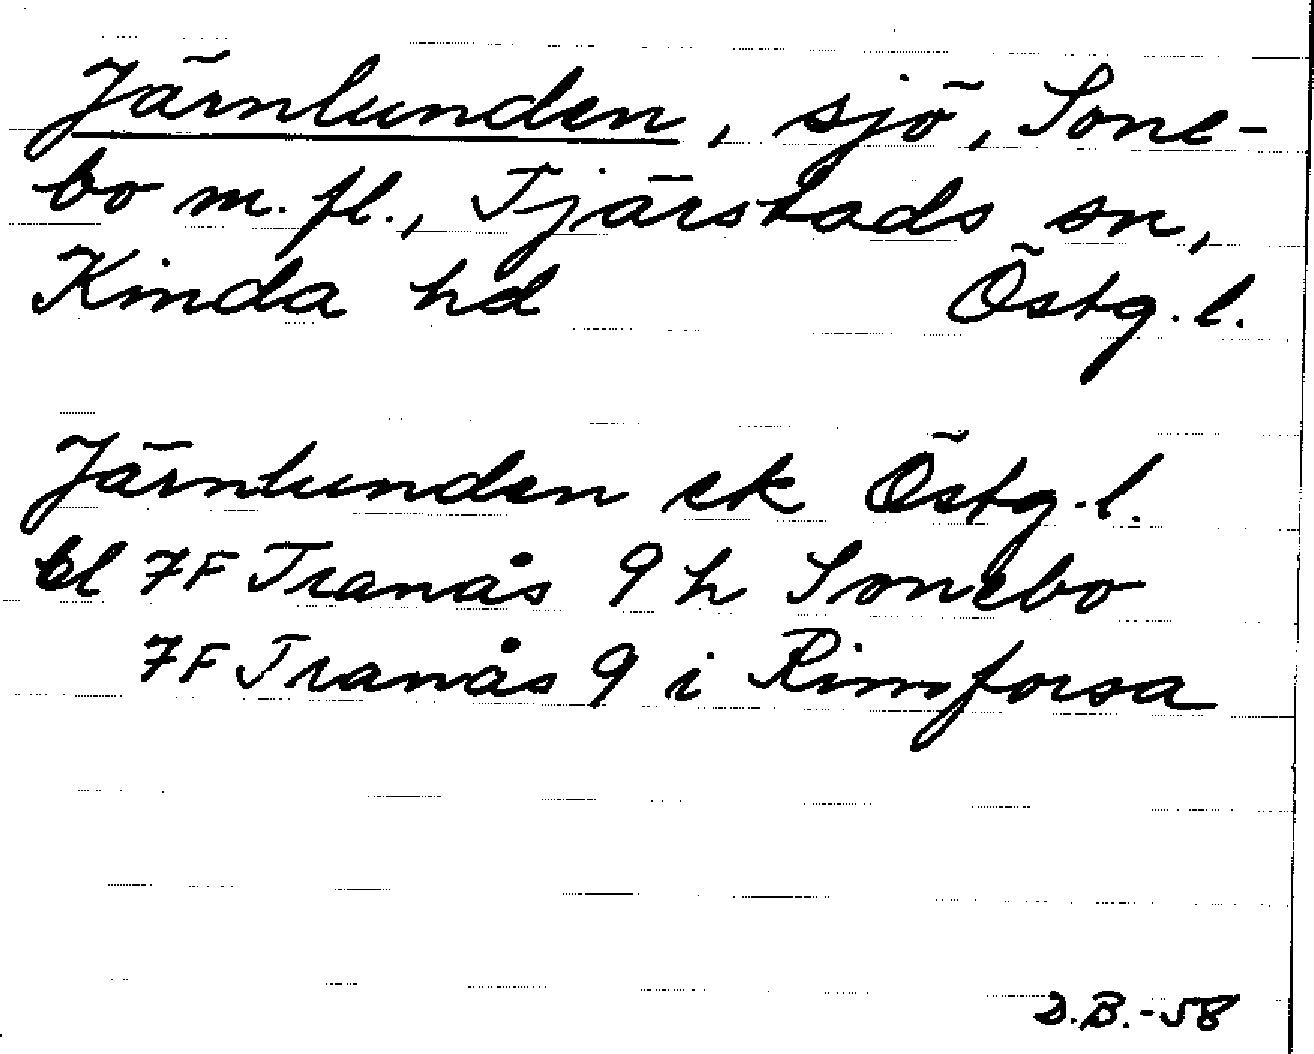 Järnlunden, sjö, Sone-
bo m. fl., Tjärstads sn,
Kinda hd Östg. l.
Järnlunden ek Östg. l.
bl 7F Tranås 9 h Sonebo
7F Tranås 9 i Rimforsa
D.B.-58